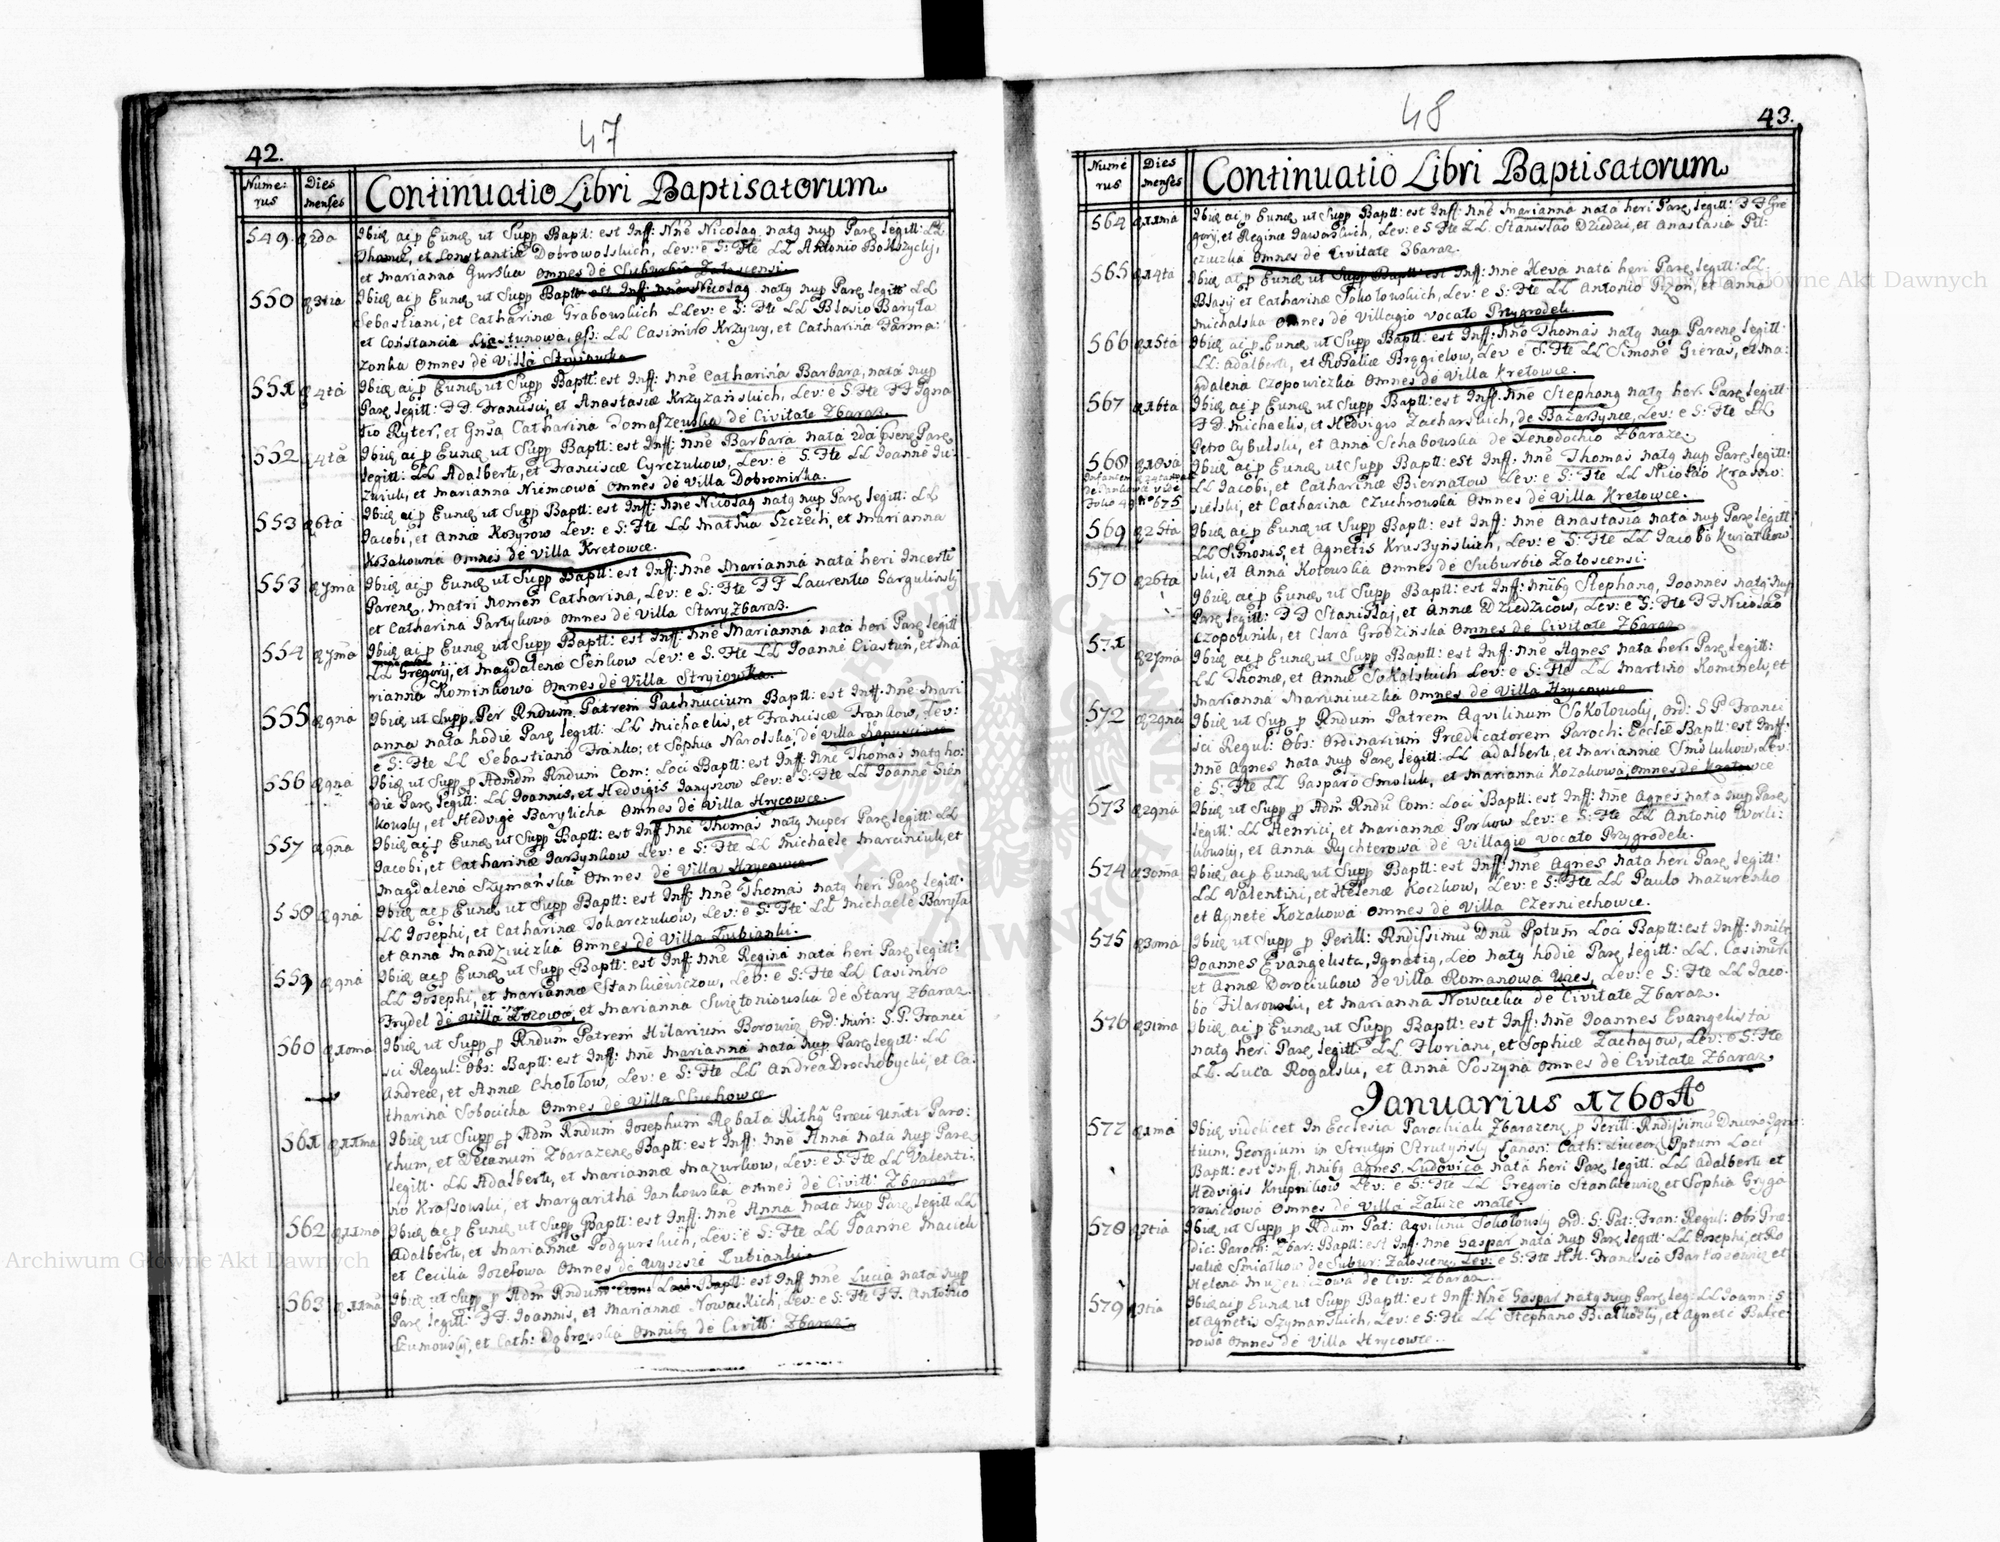 47
42.
Nume: rus
Dies menses
Continuatio Libri Baptisatorum
549. 2da Ibid ac p Eund ut Supp Baptt: est Inff: Nñe Nicolaq natq nup Parẽ legitt: LL
Thomæ, et Constantiæ Dobrowolskich, Lev: e S: Fte LL Antonio Bokszyckij,
et Marianna Gurska Omnes de Suburbio Załoscensi
550 3tia Ibid ac p Eund ut Supp Baptt: est Inff: nñe Nicolaq natq nup Parẽ legitt LL
Sebastiani, et Catharinæ Grabowskich LLev: e S: Fte LL Blasio Baryła
et Constancia Liastunowa, LL Casimiro Krzywy, et Catharina Farma:
zonka Omnes de Villa Stryiowka
551 4ta Ibid ac p Eund ut Supp Baptt: est Inff: nñe Catharina Barbara, nata nup
Parẽ legitt: FF Francisci, et Anastasiæ Krzyzańskich, Lev: e S: Fte FF Igna
tio Ryter, et Gnsa Catharina Domaszewska de Civitate Zbaraz.
552 4ta Ibid ac p Eund ut Supp Baptt: est Inff: nñe Barbara nata 2da psene Parẽ
legitt: LL Adalberti, et Franciscæ Cyrczukow, Lev: e S: Fte LL Joanne Ju:
zwiuk, et Marianna Niemcowa Omnes de Villa Dobromirka.
553 6ta Ibid ac p Eund ut Supp Baptt: est Inff: nñe Nicolaq natq nup Parẽ legitt: LL
Jacobi, et Annæ Kozyrow Lev: e S: Fte LL Mathia Szczech, et Marianna
Kozakowna Omnes de Villa Kretowce.
553 7ma Ibid ac p Eund ut Supp Baptt: est Inff: nñe Marianna nata heri Incerti
Parene, matri nomen Catharina, Lev: e S: Fte FF Laurentio Gargulinsky
et Catharina Partykowa Omnes de Villa Stary Zbaraz.
554 7ma Ibid ac p Eund ut Supp Baptt: est Inff: nñe Marianna nata heri Parẽ legitt
LL Gregorij, et Magdalenæ Seńkow Lev: e S. Fte LL Joanne Ciastun, et Ma
rianna Kominkowa Omnes de Villa Stryiowka.
555 9na Ibid ut Supp. Per Rndum Patrem Pachnucium Baptt: est Inff. nñe Mari
anna nata hodie Parẽ legitt: LL Michaelis, et Franciscæ Frankow, Lev:
e S: Fte LL Sebastiano Franko, et Sophia Narolska, de Villa
556 9na Ibid ut Supp p Admdm Rndum Com: Loci Baptt: est Inff: nñe Thomas natq ho:
die Parẽ legitt: LL Joannis, et Hedvigis Janyszow Lev: e S: Fte LL Joanne Sien
kowsky, et Hedvige Barylicha Omnes de Villa Hrycowce.
557 9na Ibid ac p Eund ut Supp Baptt: est Inff nñe Thomas natq nuper Parẽ legitt LL
Jacobi, et Catharinæ Jarzynkow Lev: e S: Fte LL Michaele Marciniuk, et
Magdalena Szymańska Omnes de Villa Hrycowce.
558 9na Ibid ac p Eund ut Supp Baptt: est Inff nñe Thomas natq heri Parẽ legitt.
LL Josephi, et Catharinæ Tokarczukow, Lev: e S: Fte LL Michaele Baryła
et Anna Mandziuczka Omnes de Villa Lubianki.
559 9na Ibid ac p Eund ut Supp Baptt: est Inff: nñe Regina nata heri Parẽ legitt:
LL Josephi, et Mariannæ Stankiewiczow, Lev: e S: Fte LL Casimiro
Frydel de Villa Łozowa, et Marianna Swiętoniowska de Stary Zbaraz.
560 10ma Ibid ut Supp p Rndum Patrem Hilarium Borowicz Ord: Min: S.P. Franci
sci Regul: Obs: Baptt: est Inff: nñe Marianna nata nup Parẽ legitt: LL
Andreæ, et Annæ Chołołow, Lev: e S: Fte LL Andrea Drochobycki, et Ca:
tharina Sobocicka Omnes de Villa Iuchowce
561 11ma Ibid ut Supp p Adm Rndum Josephum Rębala Rithq Græci Uniti Paro:
chum, et Decanum Zbarazenẽ Baptt: est Inff: nñe Anna nata nup Parẽ
legitt: LL Adalberti, et Mariannæ Mazurkow, Lev: e S: Fte LL Valenti:
no Krassowski, et Margaritha Jankowska Omnes de Civitt: Zbaraz
562 11ma Ibid ac p Eund ut Supp Baptt: est Inff: nñe Anna nata nup Parẽ legitt LL
Adalberti, et Mariannæ Podgurskich, Lev: e S: Fte LL Joanne Maciek
et Cecilia Jozefowa Omnes de Wyzsze Lubianki.
563 11ma Ibid ut Supp p Adm Rndum Com: Loci Baptt: est Inff nñe Lucia nata nup
Parẽ legitt: FF Joannis, et Mariannæ Nowackich, Lev: e S: Fte FF. Antonio
Szumowsky, et Cath: Dąbrowska Omnibq de Civitt: Zbaraz.
48
43.
Nume rus
Dies menses
Continuatio Libri Baptisatorum
564 11ma Ibid ac p Eund ut Supp Baptt: est Inff: nñe Marianna nata heri Parẽ legitt: FF Gre
gorij, et Reginæ Jaworskich, Lev: e S Fte LL. Stanislao Dziedzic, et Anastasia Pil:
czuczka Omnes de Civitate Zbaraz.
565 14ta Ibid ac p Eund ut Supp Baptt: est Inff: nñe Heva nata heri Parẽ legitt: LL
Blasij et Catharinæ Sokołowskich, Lev: e S: Fte LL Antonio Gizon, et Anna
Michalska Omnes de Villagio vocato Przygrodek.
566 15ta Ibid ac p Eund ut Supp Baptt: est Inff: nñe Thomas natq nup Parene legitt:
LL: Adalberti, et Rosaliæ Bręgielow, Lev e S: Fte LL Simone Gieras, et Ma:
gdalena Czopowiczka Omnes de Villa Kretowce.
567 16ta Ibid ac p Eund ut Supp Baptt: est Inff: nñe Stephanq natq heri Parẽ legitt
FF Michaelis, et Hedvigis Zacharskich, de Bazarzynce, Lev: e S: Fte LL
Petro Cybulski, et Anna Schabowska de Xenodochio Zbaraze.
568 18va Ibid ac p Eund ut Supp Baptt: est Inff: nñe Thomas natq nup Parẽ legitt:
LL Jacobi, et Catharinæ Biernatow Lev: e S: Fte LL Nicolao Krasno:
sielski, et Catharina Czuchrowska Omnes de Villa Kretowce.
folio 49 no 675
569 25ta Ibid ac p Eund ut Supp Baptt: est Inff: nñe Anastasia nata nup Parẽ legitt:
LL Simonis, et Agnetis Kruszyńskich, Lev: e S: Fte LL Jacobo Kwiatkow
ski, et Anna Kotowska Omnes de Suburbio Załoscensi.
570 26ta Ibid ac p Eund ut Supp Baptt: est Inff: nnibq Stephanq, Joannes natq nup
Parẽ legitt: FF Stanislaj, et Annæ Dziedzicow, Lev: e S: Fte FF Nicolao
Czopownik, et Clara Grodzińska Omnes de Civitate Zbaraz
571 27ma Ibid ac p Eund ut Supp Baptt: est Inff: nñe Agnes nata heri Parẽ legitt:
LL Thomæ, et Annæ Sokalskich Lev: e S: Fte LL Martino Kominek, et
Marianna Maruniuczka Omnes de Villa Hrycowce
572 29na Ibid ut Sup p Rndum Patrem Aquilinum Sokołowsky, Ord: S P Franci
sci Regul: Obs: Ordinarium Prædicatorem Paroch: Ecclẽ Baptt: est Inff:
nñe Agnes nata nup Parẽ legitt: LL Adalberti, et Mariannæ Smolukow, Lev:
e S: Fte LL Gasparo Smoluk, et Marianna Kozakowa, Omnes de Kretowce
573 29na Ibid ut Supp p Adm Rndu Com: Loci Baptt: est Inff: nñe Agnes nata nup Parẽ
legitt: LL Henrici, et Mariannæ Porkow Lev: e S: Fte LL Antonio Worli:
kowsky, et Anna Rychterowa de Villagio vocato Przygrodek.
574 30ma Ibid, ac p Eund ut Supp Baptt: est Inff: nñe Agnes nata heri Parẽ legitt:
LL Valentini, et Helenæ Koczkow, Lev: e S: Fte LL Paulo Mazurenko
et Agnete Kozakowa Omnes de Villa Czerniechowce.
575 30ma Ibid ut Supp p Perill: Rndissimu Dnu Pptum Loci Baptt: est Inff: nnibq
Joannes Evangelista, Ignatiq, Leo natq hodie Parẽ legitt: LL. Casimiri
et Annæ Dorociukow de Villa Romanowa Wies, Lev: e S: Fte LL Jaco:
bo Filarowski, et Marianna Nowacka de Civitate Zbaraz.
576 31ma Ibid ac p Eund ut Supp Baptt: est Inff: nñe Joannes Evangelista
natq heri Parẽ legitt: LL Floriani, et Sophiæ Zachajow, Lev: e S: Fte
LL. Luca Rogalski, et Anna Soszyna Omnes de Civitate Zbaraz
Januarius 1760 Ao
577 1ma Ibid videlicet In Ecclesia Parochiali Zbarazenẽ p Perill: Rndissimu Dnum Igna:
tium, Georgium in Strutyn Strutynsky Canon: Cath: Luceor Pptum Loci
Baptt: est Inff. nnibq Agnes, Ludovica nata heri Parẽ legitt: LL Adalberti et
Hedvigis Krupnikow Lev: e S: Fte LL Gregorio Stankiewicz et Sophia Gryga
rowiczowa Omnes de Villa Załuze małe.
578 3tia Ibid ut Supp p Rdum Pat: Aquilinu Sokołowsky Ord: S: Pat: Fran: Regul: Obs Præ:
dic: Paroch: Zbar: Baptt: est Inff. nñe Gaspar natq nup Parẽ legitt: LL Josephi, et Ro
saliæ Smiatkow de Subur: Załoscenẽ, Lev: e S: Fte HH. Francisco Bartoszewicz et
Helena de Civ: Zbaraz.
579 3tia Ibid ac p Eund ut Supp Baptt: est Inff: Nñe Gaspar natq nup Parẽ leg: LL Joannis
et Agnetis Szymańskich, Lev: e S: Fte LL Stephano Białkowsky, et Agnete Balce
rowa Omnes de Villa Hrycowce.
Archiwum Główne Akt Dawnych
Archiwum Główne Akt Dawnych